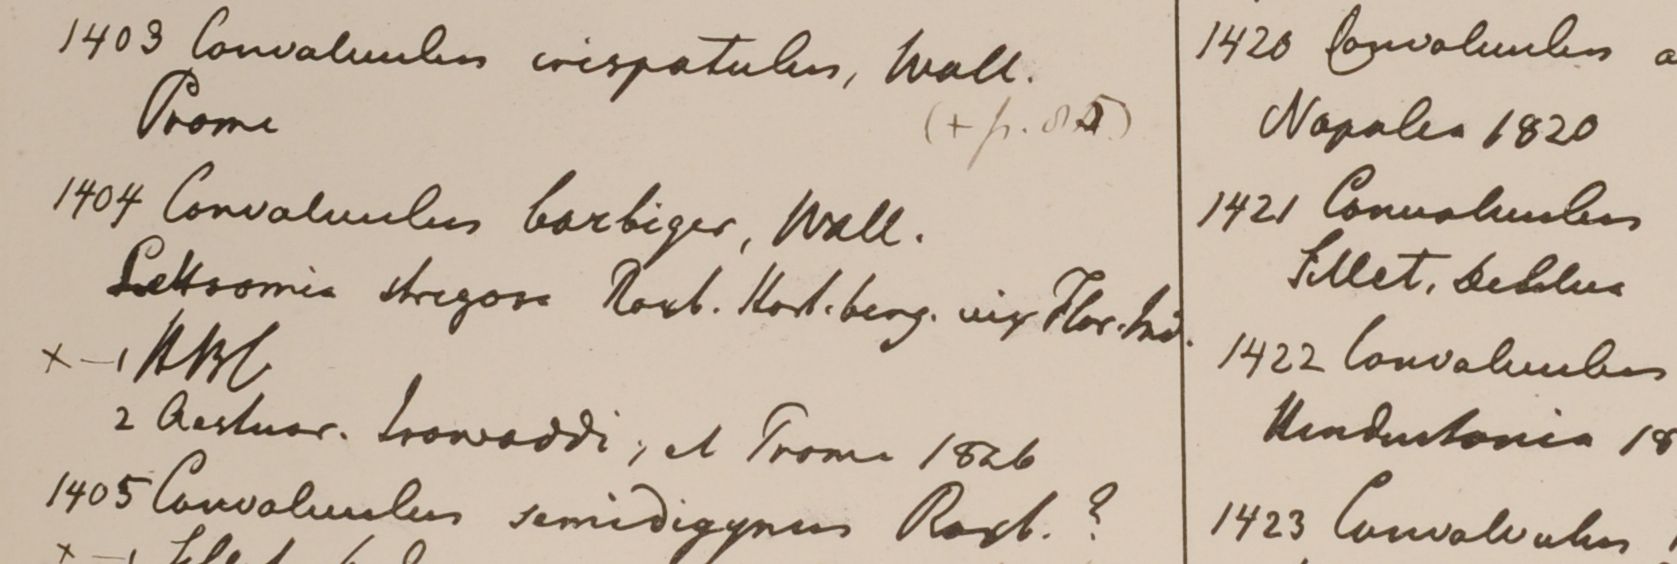 1403 Convolvulus crispatulus, Wall.
Prome
(+ p. 85)
1404 Convolvulus barbiger, Wall.
Lettsomia strigosa Roxb. Hort. beng. vix Flor. Ind.
× — 1 HBC
2 Aestuar. Irawaddi, et Prome 1826
1405 Convolvulus semidigynus Roxb. ?
× — 1
1420 Convolvulus a
Napalia 1820
1421 Convolvulus
Sillet, De Silva
1422 Convolvulus
Hindustania 18
1423 Convolvulus